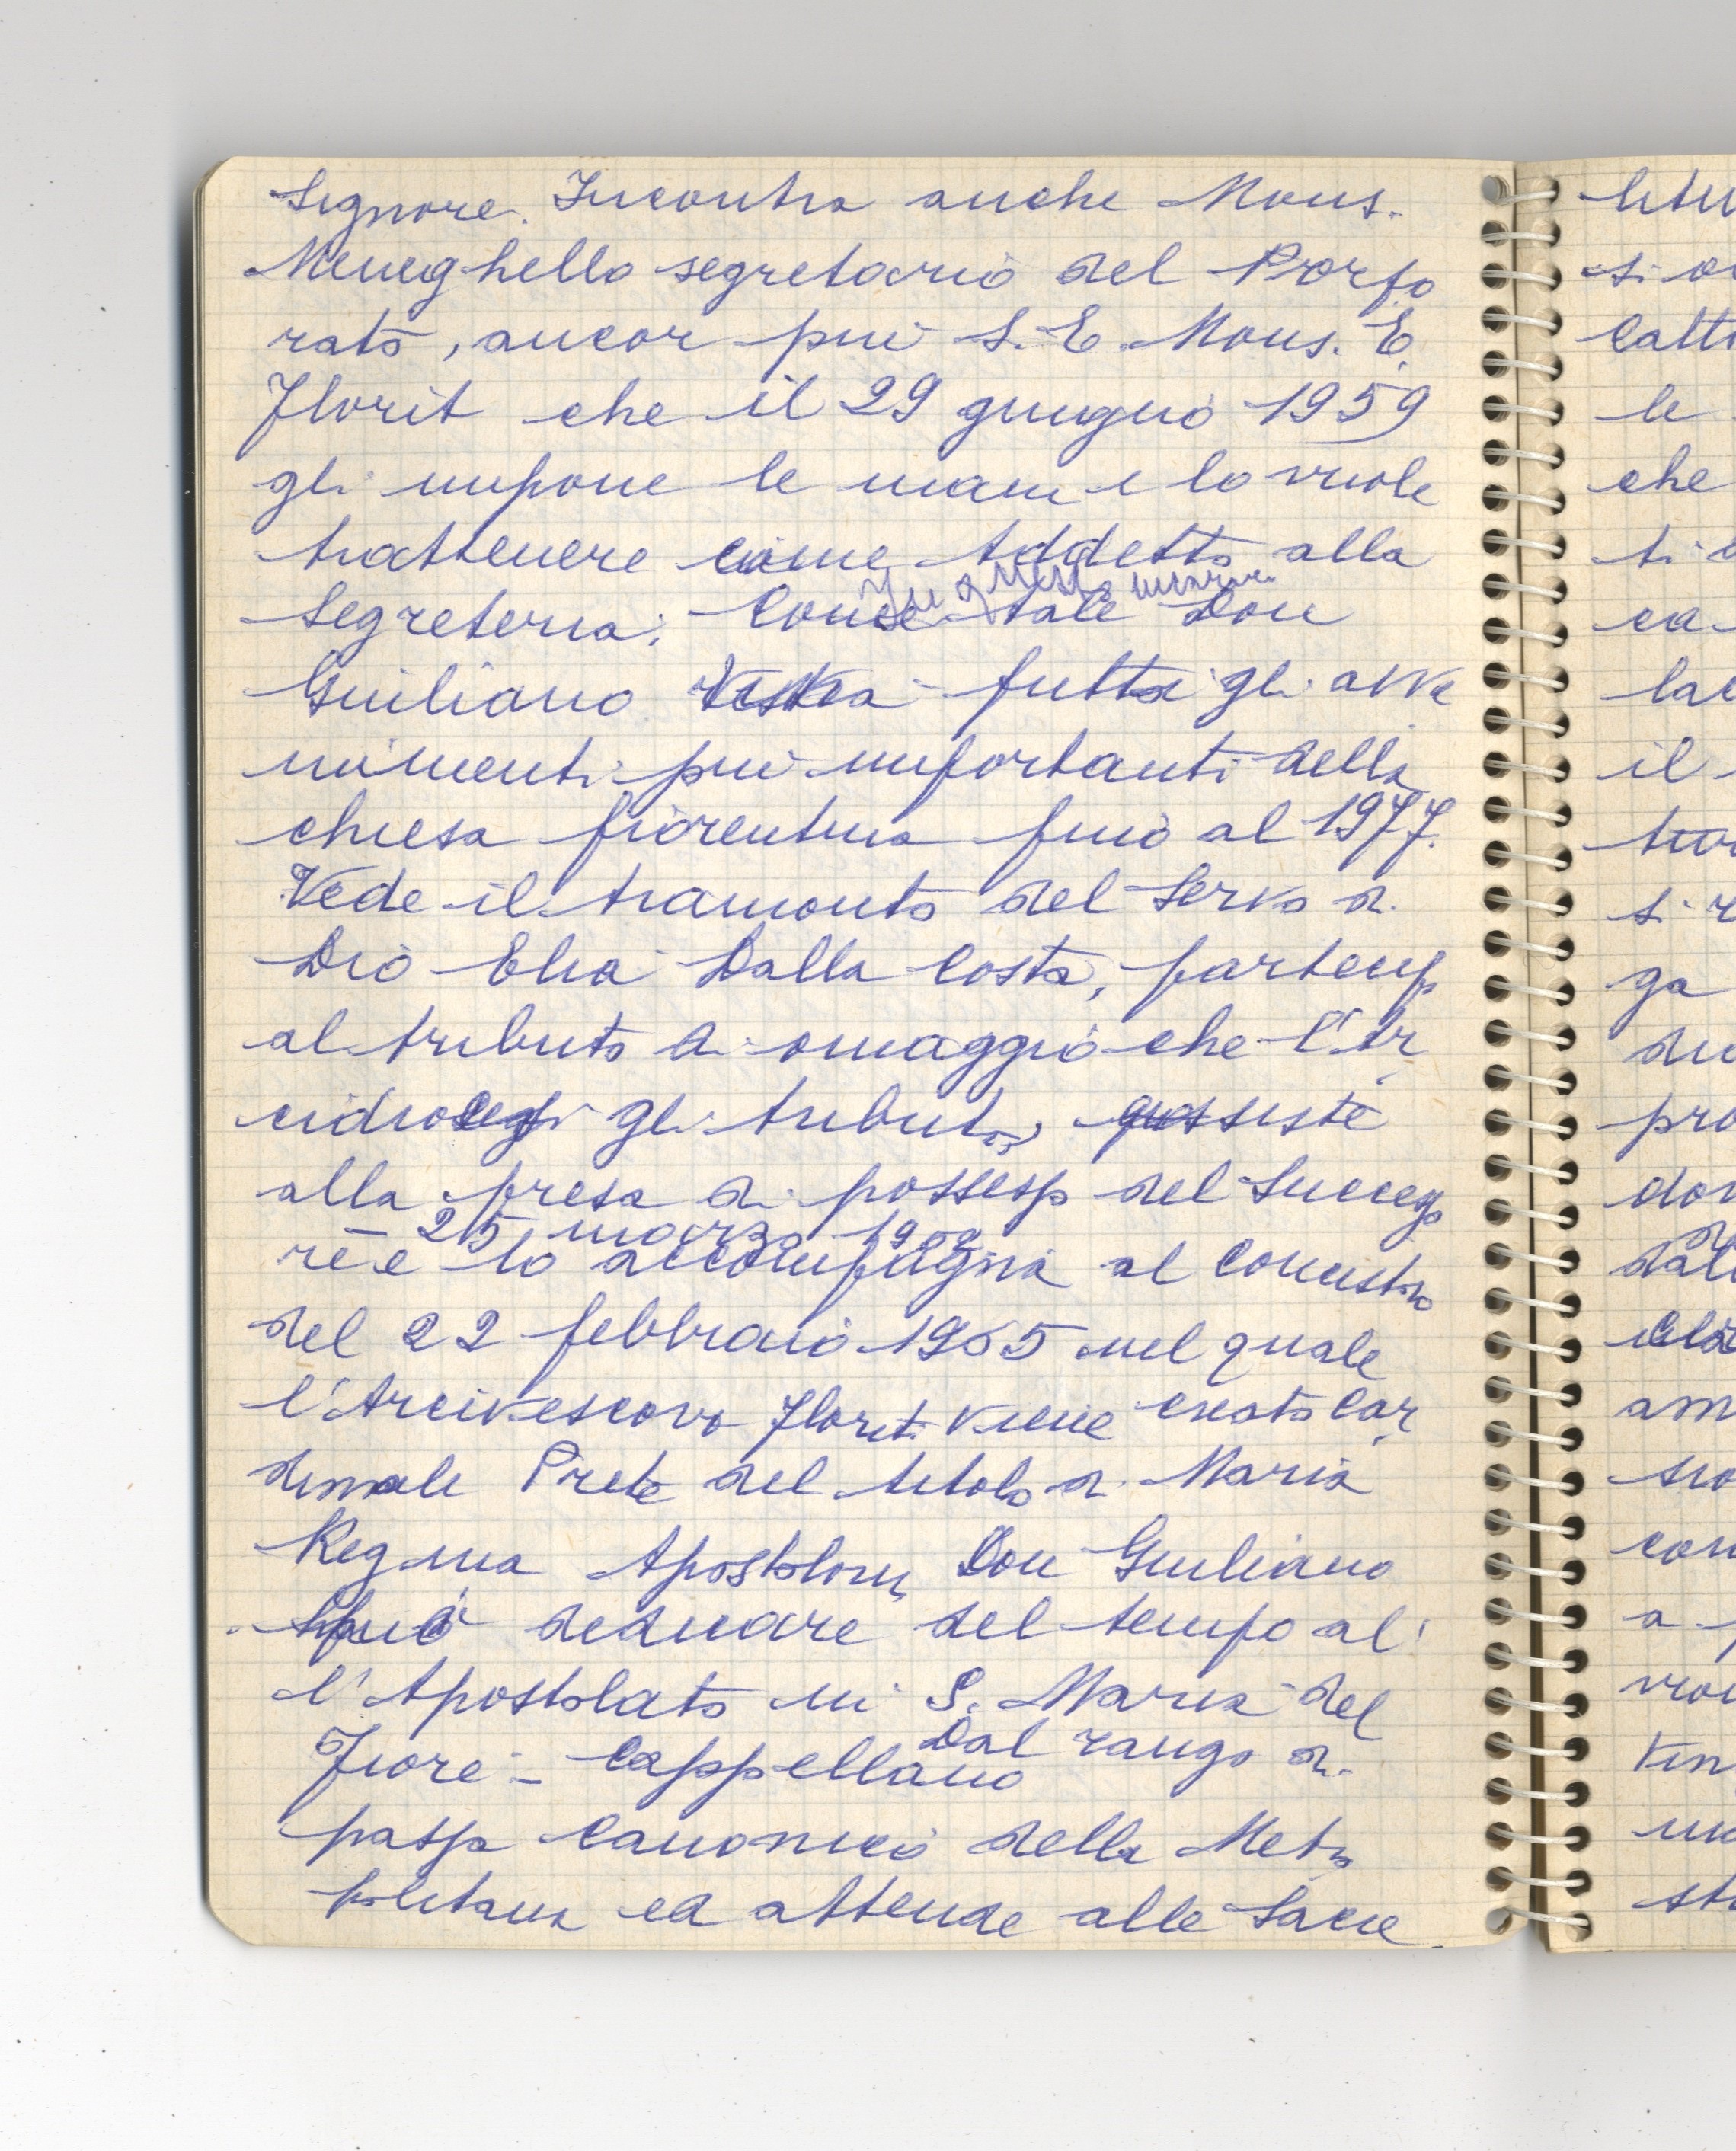 Signore. Incontra anche Mons.
Meneghello segretario del Porpo
rato, ancor più S. E. Mons. E.
Florit che il 29 giugno 1959
gli impone le mani e lo vuole
trattenere come Addetto alla
Segreteria; Come tale Don
Giuliano tutti gli avve
nimenti più importanti della
chiesa fiorentina fino al 1977.
Vede il tramonto del Servo di
Dio Elia Dalla Costa, partecip
al tributo di omaggio che l'Ar
cidiocesi gli tributò, assiste
alla presa di possesso del Success
- 25 marzo
re e lo accompagna al Concistoro
del 22 febbraio 1965 nel quale
l'Arcivescovo Florit viene creato Car
dinale Prete del titolo di Maria
Regina Apostolorum Don Giuliano
può dedicare del tempo al
l'Apostolato in S. Maria del
Fiore - Cappellano Dal rango di
passa Canonico della Metro
politana ed attende alle Sacre
litu
si
Catt
le
che
ti
ca
il
si
ga
pro
don
am
con
a